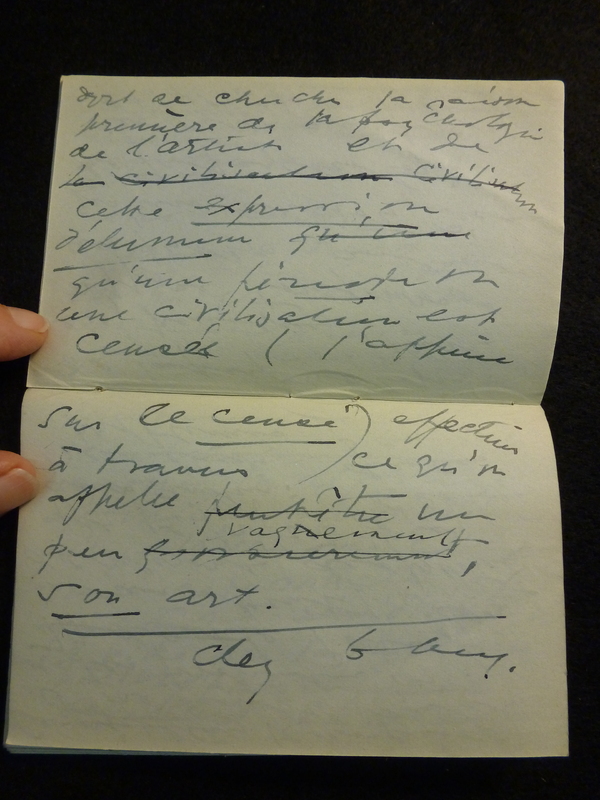 dort de cherche la raison
première de la psychologie
de l'artiste et de
la civilisation civilisation
cette expression
qu'une
qu'une période ou
une civilisation est
censée ( j'appuie
sur le censé ) effectuer
à travers ce qu'on
appelle peut être un
vaguement
peu ,
son art.
chez